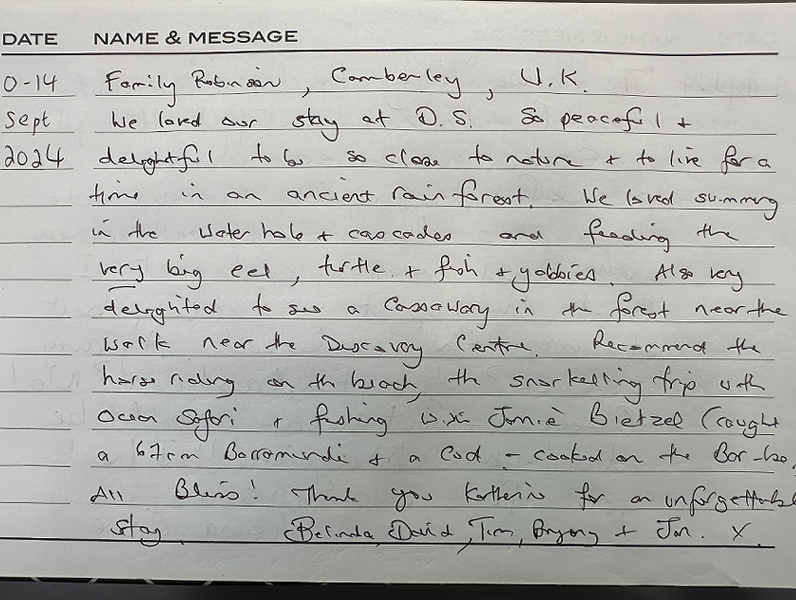 DATE NAME & MESSAGE
0-14 Family Robinson, Camberley, U.K.
Sept We loved our stay at D.S. So peaceful +
2024 delightful to be so close to nature + to live for a
time in an ancient rainforest. We loved swimming
in the water hole + cascades and feeding the
very big eel, turtle + fish + yabbies. Also very
delighted to see a Cassowary in the forest near the
walk near the Discovery Centre. Recommend the
horse riding on the beach, the snorkelling trip with
Ocean Safari + fishing with Jamie Bietzel (caught
a 67cm Barramundi + a Cod - cooked on the Bar-b
All Bliss! Thank you Katherine for an unforgettable
stay. Belinda, David, Tim, Bryony + Jon. X